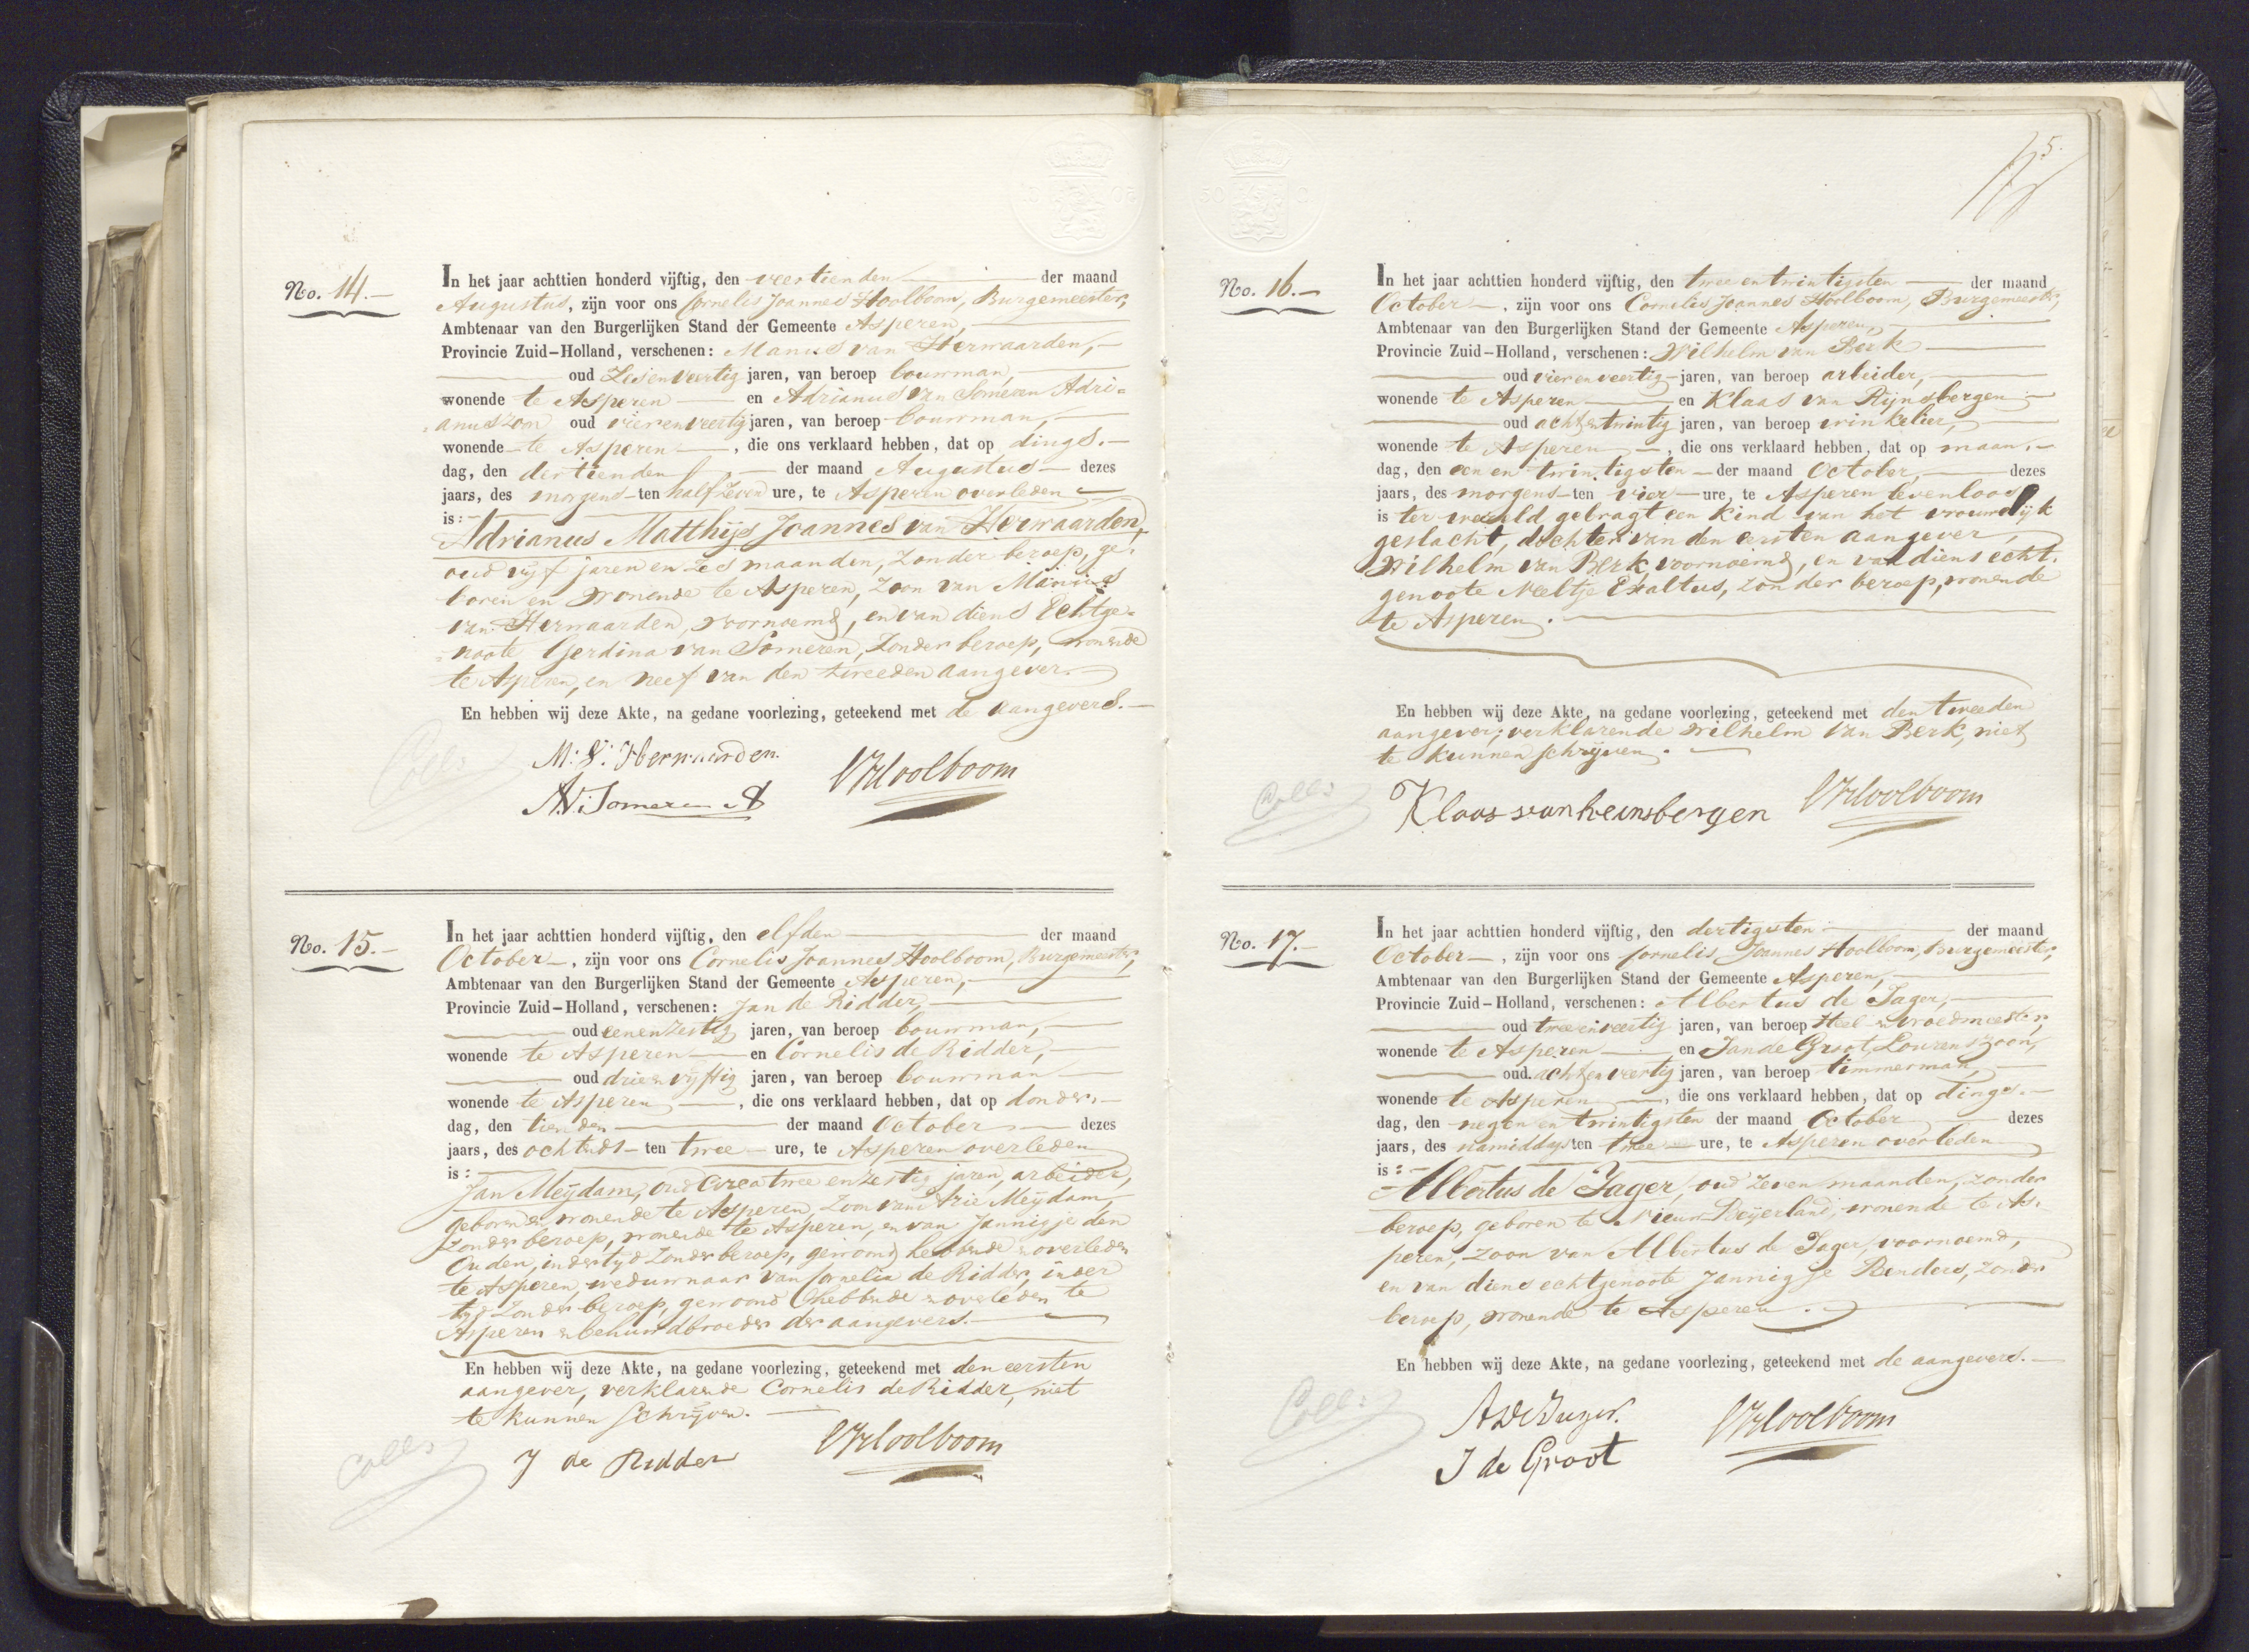 No. 14.
In het jaar achttien honderd vijftig, den veertienden der maand
Augustus, zijn voor ons Cornelis Joannes Hoolboom, Burgemeester,
Ambtenaar van den Burgerlijken Stand der Gemeente Asperen,
Provincie Zuid-Holland, verschenen: Manus van Herwaarden,
oud Zesenveertig jaren, van beroep bouwman,
wonende te Asperen en Adrianus van Someren Adri=
=anuszoon oud vierenveertig jaren, van beroep bouwman,
wonende te Asperen, die ons verklaard hebben, dat op dings.
dag, den dertienden der maand Augustus dezes
jaars, des morgens ten half zeven ure, te Asperen overleden
is:
Adrianus Matthijs Joannes van Herwaarden,
oud vijf jaren en zes maanden, zonder beroep, ge-
boren en wonende te Asperen, zoon van
van Herwaarden, voornoemd, en van diens Echtge=
=noote Gerdina van Someren, zonder beroep, wonende
te Asperen, en neef van den tweeden aangever.
En hebben wij deze Akte, na gedane voorlezing, geteekend met de aangevers.
M: V: Herwaarden.
A V: Someren A
CJHoolboom
Coll:
No. 15.
In het jaar achttien honderd vijftig, den elfden der maand
October, zijn voor ons Cornelis Joannes Hoolboom, Burgemeester,
Ambtenaar van den Burgerlijken Stand der Gemeente Asperen,
Provincie Zuid-Holland, verschenen: Jan de Ridder,
oud eenenzestig jaren, van beroep bouwman,
wonende te Asperen en Cornelis de Ridder,
oud drieenvijftig jaren, van beroep bouwman
wonende te Asperen, die ons verklaard hebben, dat op donder.
dag, den tienden der maand October dezes
jaars, des ochtends ten twee ure, te Asperen overleden
is:
Jan Meijdam, oud circa twee en zestig jaren, arbeider,
geboren en wonende te Asperen, zoon van Arie Meijdam,
zonder beroep, wonende te Asperen, en van Jannigje den
Ouden, in der tijd zonder beroep, gewoond hebbende en overleden
te Asperen, weduwnaar van Cornelia de Ridder, in der
tijd zonder beroep, gewoond hebbende en overleden te
Asperen en behuwdbroeder der aangevers.
En hebben wij deze Akte, na gedane voorlezing, geteekend met den eersten
aangever, verklarende Cornelis de Ridder, niet
te kunnen schrijven.
J de Ridder
CJHoolboom
Coll:
5.
No. 16.
In het jaar achttien honderd vijftig, den twee en twintigsten der maand
October, zijn voor ons Cornelis Joannes Hoolboom, Burgemeester,
Ambtenaar van den Burgerlijken Stand der Gemeente Asperen,
Provincie Zuid-Holland, verschenen: Wilhelm van Berk
oud vierenveertig jaren, van beroep arbeider,
wonende te Asperen en Klaas van Rijnsbergen
oud achtentwintig jaren, van beroep winkelier,
wonende te Asperen, die ons verklaard hebben, dat op maan.
dag, den een en twintigsten der maand October, dezes
jaars, des morgens ten vier ure, te Asperen levenloos
is ter wereld gebragt een kind van het vrouwelijk
geslacht, dochter van den eersten aangever,
Wilhelm van Berk, voornoemd, en van diens echt.
genoote Neeltje Exaltus, zonder beroep, wonende
te Asperen.
En hebben wij deze Akte, na gedane voorlezing, geteekend met den tweeden
aangever; verklarende Wilhelm van Berk, niet
te kunnen schrijven.
Klaas van Reinsbergen
CJHoolboom
Coll:
No. 17.
In het jaar achttien honderd vijftig, den dertigsten der maand
October, zijn voor ons Cornelis Joannes Hoolboom, Burgemeester,
Ambtenaar van den Burgerlijken Stand der Gemeente Asperen,
Provincie Zuid-Holland, verschenen: Albertus de Jager,
oud tweeenveertig jaren, van beroep Heel- en vroedmeester,
wonende te Asperen en Jan de Groot, Lourenszoon,
oud achtenveertig jaren, van beroep timmerman,
wonende te Asperen, die ons verklaard hebben, dat op dings.
dag, den negen en twintigsten der maand October dezes
jaars, des namiddags ten twee ure, te Asperen overleden
is:
Albertus de Jager, oud zeven maanden, zonder
beroep, geboren te Nieuw-Beijerland, wonende te As.
peren, zoon van Albertus de Jager, voornoemd,
en van diens echtgenoote Jannigje Benders, zonder
beroep, wonende te Asperen.
En hebben wij deze Akte, na gedane voorlezing, geteekend met de aangevers.
A de Jager.
J de Groot
CJHoolboom
Coll: